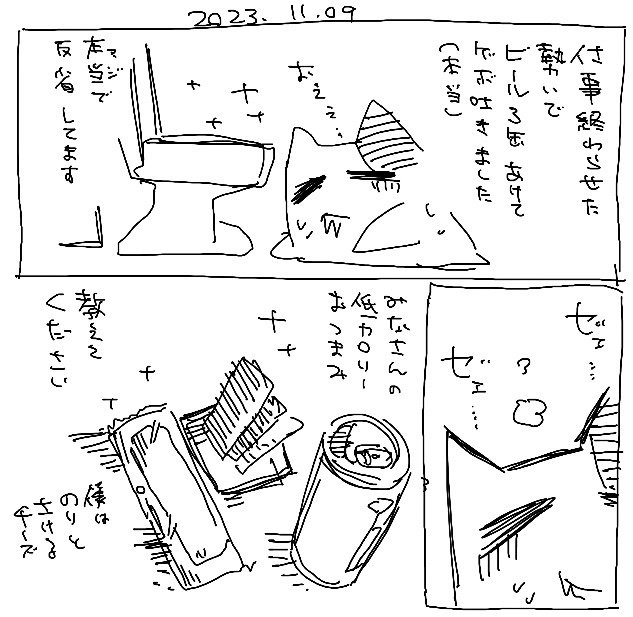 2023.11.09
仕事終わらせた
勢いで
ビール3缶あけて
ゲボ吐きました
(本当)
おぇぇぇ…
本当で
マジ
反省してます
ゼェ…
ゼェ…
みなさんの
低カロリー
おつまみ
教えて
ください
僕は
のりと
さける
チーズ